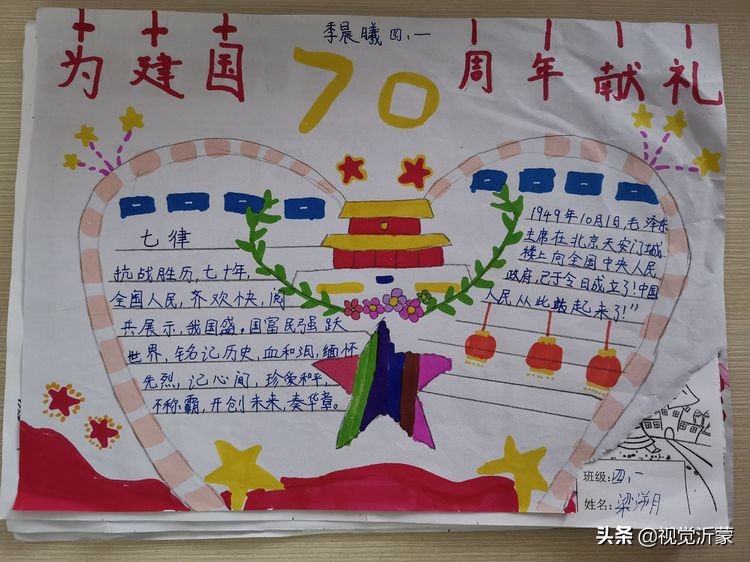 季晨曦 四、一
为建国70周年献礼
七律
抗战胜历,七十年,
全国人民,齐欢快,阅
兵展示,我国盛。国富民强跃
世界,铭记历史,血和泪,缅怀
先烈,记心间,珍爱和平,
不称霸,开创未来,奏华章。
1949年10月1日毛泽东
主席在北京天安门城
楼上向全国中央人民
政府,已于今日成立了!中国
人民从此站起来了!”
班级:四、一
姓名:梁
头条 @视觉沂蒙